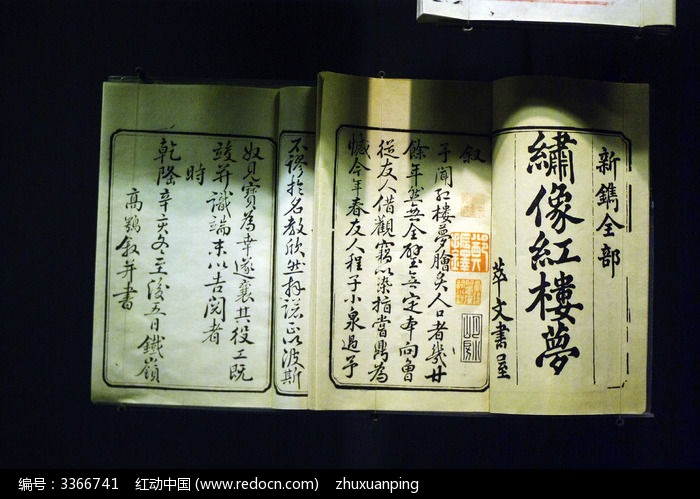 新鐫全部
繡像紅樓夢
萃文書屋
叙
予聞紅樓夢膾炙人口者幾廿
餘年然無全璧無定本向曾
從友人借觀竊以染指嘗鼎為
憾今年春友人程子小泉過予
不謬於名教欣然拜諾正以波斯
奴見寶為幸遂襄其役工既
竣并識端末以告閱者
時
乾隆辛亥冬至後五日鐵嶺
高鶚叙并書
编号：3366741 红动中国 (www.redocn.com) zhuxuanping